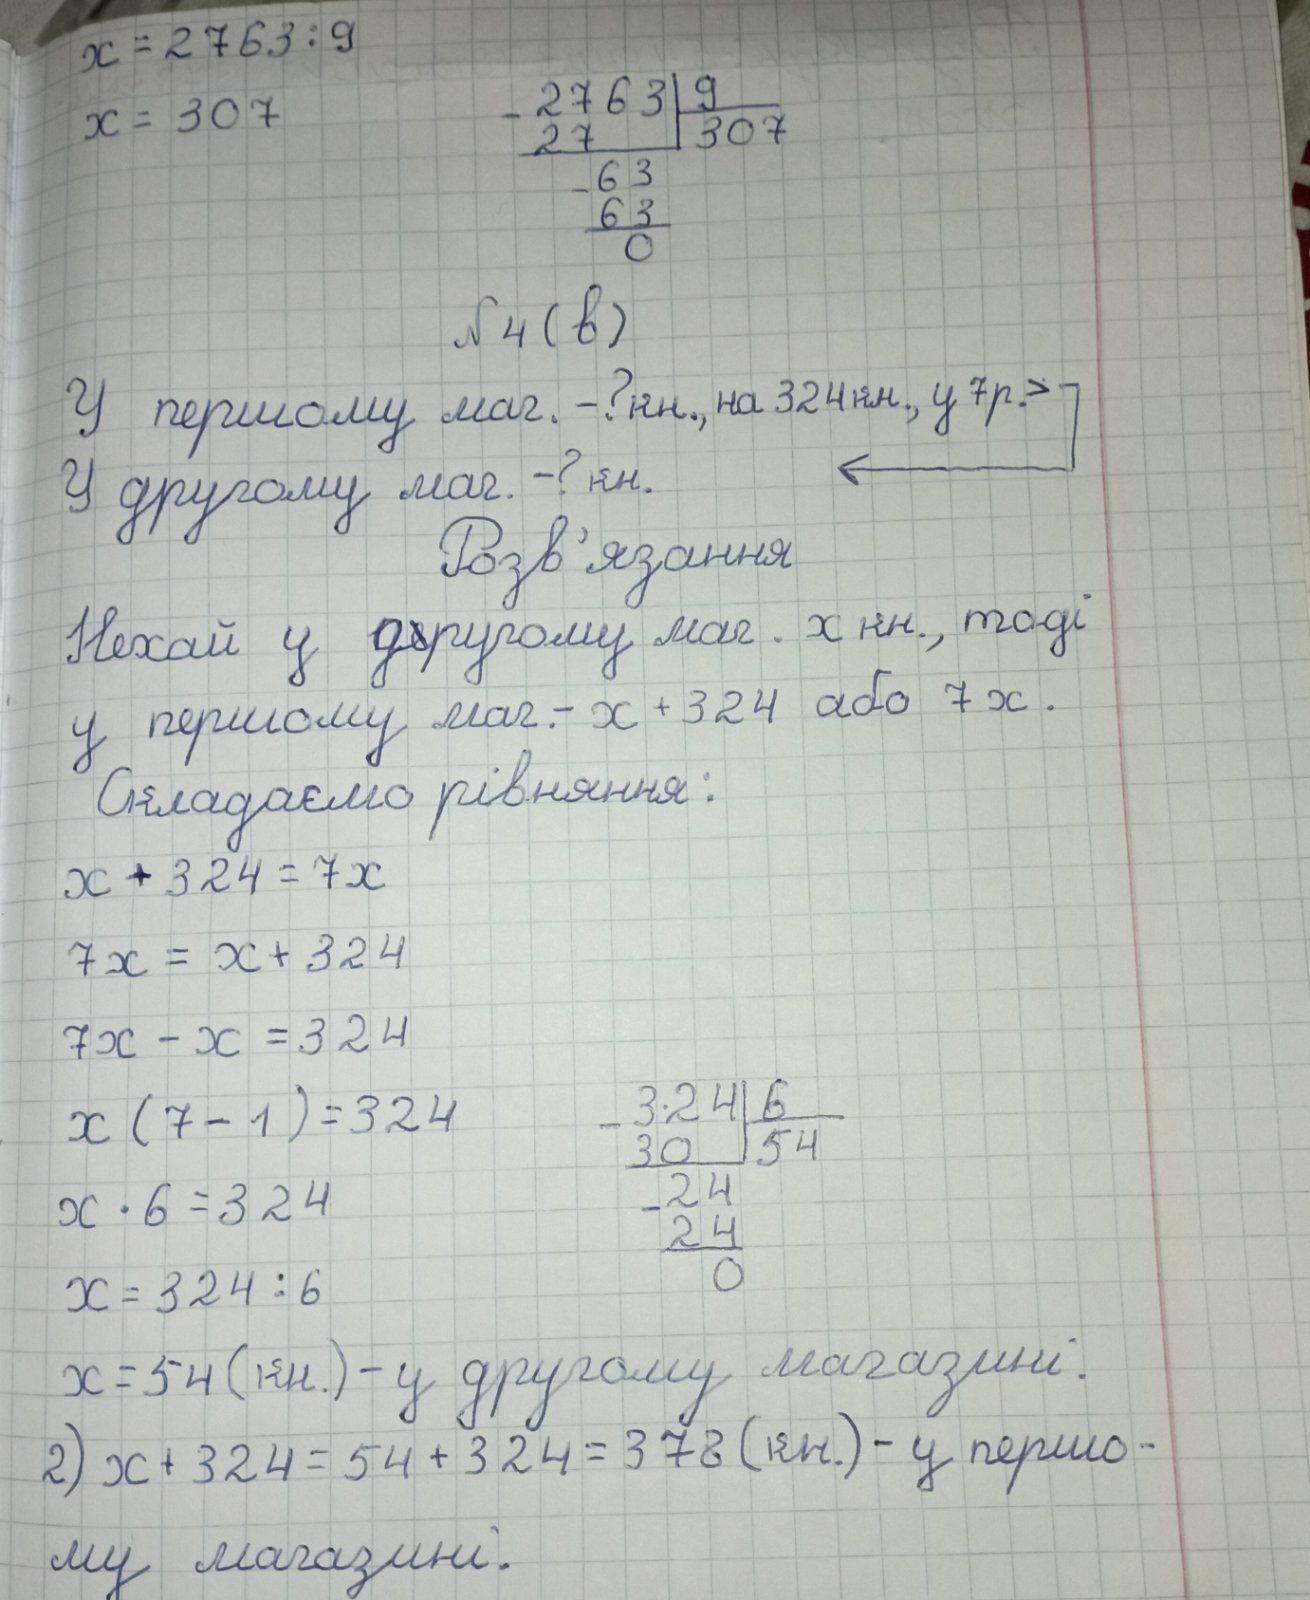 x = 2763 : 9
x = 307
- 2763 | 9
27 | 307
- 63
63
0
№ 4 (в)
У першому маг. - ? кн., на 324 кн., у 7 р. >
У другому маг. - ? кн.
Розв'язання
Нехай у другому маг. х кн., тоді
у першому маг. - х + 324 або 7х.
Складаємо рівняння:
х + 324 = 7х
7х = х + 324
7х - х = 324
х (7 - 1) = 324
- 324 | 6
30 | 54
- 24
24
0
х · 6 = 324
х = 324 : 6
х = 54 (кн.) - у другому магазині.
2) х + 324 = 54 + 324 = 378 (кн.) - у першо-
му магазині.